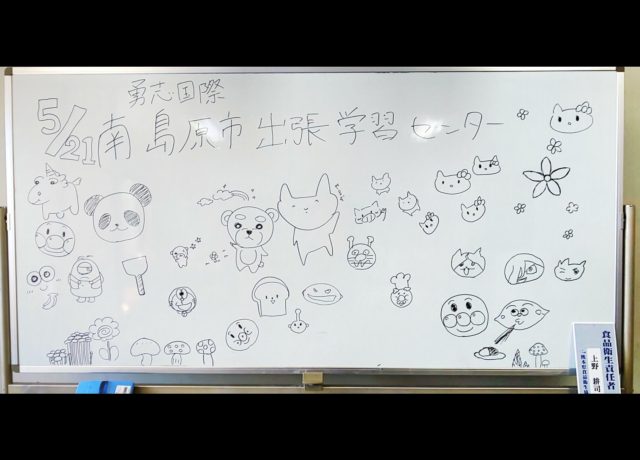 勇志国際
5/21 南島原市出張学習センター
食品衛生責任者
上野 耕司